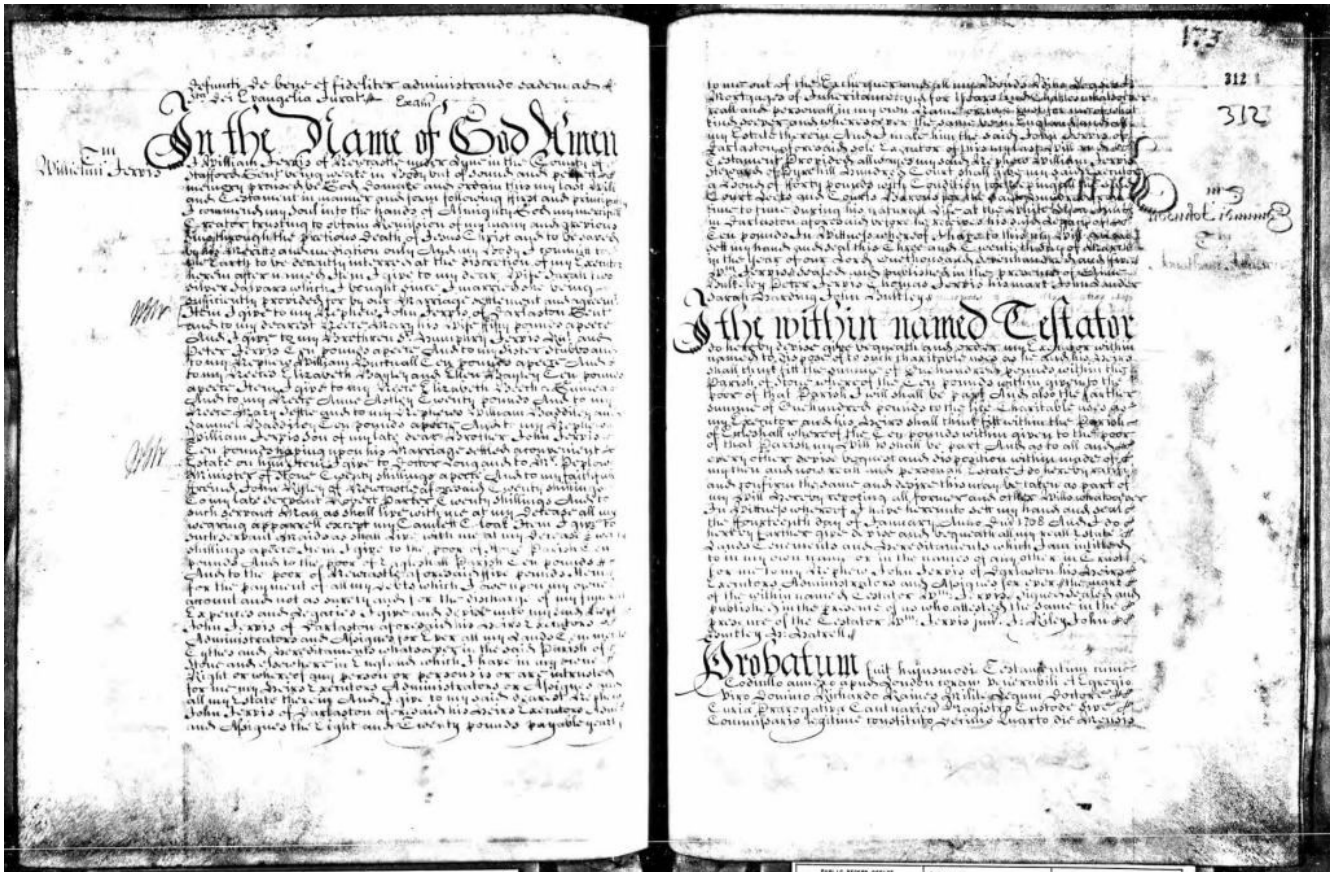 defuncti de bene et fideliter administrando eadem ad
Dei Evangelia Jurat Exam
In the Name of God Amen
Tm
Willielmi Jervis
I William Jervis of Newcastle under Lyme in the County of
Stafford Gent being weake in Body but of sound and
memory praised be God do make and ordain this my last Will
and Testament in manner and form following first and
I commend my Soul into the hands of Almighty God my
Creator trusting to obtain Remission of my many and
Sins through the precious Death of Jesus Christ and to be saved
by his Merits and mediation only And my Body I commit to
the Earth to be decently interred at the discretion of my Executor
herein after named Item I give to my dear Wife Sarah two
silver Salvars which I bought since I married she being
sufficiently provided for by our Marriage settlement and
Item I give to my Nephew John Jervis of Darlaston Gent
and to my dearest Neece Mary his Wife fifty pounds apeece
And I give to my Brethren Humphry Jervis and
Peter Jervis Ten pounds apeece And to my Sister Stubbs and
to my Nephew William Ten pounds apeece And
to my Neeces Elizabeth Bayley and Ellen Bayley Ten pounds
apeece Item I give to my Neece Elizabeth
And to my Neece Anne Astley Twenty pounds And to my
Neece Mary and to my Nephews William Baddiley and
Samuel Baddiley Ten pounds apeece And to my Nephew
William Jervis Son of my late dear Brother John Jervis
Ten pounds having upon his Marriage setled a convenient
Estate on him Item I give to Doctor Long and to Mr Peploe
Minister of Stone Twenty shillings apeece And to my faithfull
friend John Ryley of Newcastle aforesaid Twenty shillings
To my late servant Robert Parker Twenty shillings And to
such servant Man as shall live with me at my Decease all my
wearing apparrell except my Camlett Cloak Item I give to
such servant Maids as shall live with me at my Decease
shillings apeece Item I give to the poor of Stone Parish Ten
pounds And to the poor of Eccleshall Parish Ten pounds
And to the poor of Newcastle aforesaid five pounds Item
for the payment of all my Debts which I owe upon my owne
account and not as surety and for the discharge of my funerall
Expences and Legacies I give and devise unto my said
John Jervis of Darlaston aforesaid his Heirs Executors
Administrators and Assignes for Ever all my Lands Tenements
Tythes and Hereditaments whatsoever in the said Parish of
Stone and elsewhere in England which I have in my owne
Right or whereof any person or persons is or are intrusted
for me my Heirs Executors Administrators or Assignes and
all my Estate therein And I give to my said dearest Nephew
John Jervis of Darlaston aforesaid his Heirs Executors
and Assignes the Eight and Twenty pounds payable yearly
173
312
312
to me out of the Exchequer and all my Bonds Bills
Mortgages of Inheritance or for Years and Chattels whatsoever
reall and personall in my own Name or in trust for me of what
kind soever and wheresoever the same be in England and all
my Estate therein And I make him the said John Jervis of
Darlaston aforesaid sole Executor of this my last Will and
Testament Provided allwayes my said Nephew William Jervis
Steward of Pyrehill Hundred Court shall give my said Executor
a Bond of fforty pounds with Condition for keeping all
Court Leets and Courts Barons
time to time during his naturall Life at the
in Darlaston aforesaid before he receives his said Legacy of
Ten pounds In Witness whereof I have to this my Will
sett my hand and seal this Three and Twentieth day of March
in the Year of our Lord One thousand seven hundred and five
Wm Jervis Sealed and published in the presence of
Bulkeley Peter Jervis Thomas Jervis his mark John
Sarah Harding John Buttley
I the within named Testator
do hereby devise give bequeath and order my Executor within
named to dispose of to such charitable uses as he and his Heirs
shall think fitt the summe of One hundred pounds within the
Parish of Stone whereof the Ten pounds within given to the
poor of that Parish I will shall be part And also the farther
summe of One hundred pounds to the like Charitable uses as
my Executor and his Heirs shall think fitt within the Parish
of Eccleshall whereof the Ten pounds within given to the poor
of that Parish my Will is shall be part And as to all and
every other devise bequest and disposition within made of
my then and now reall and personall Estate I do hereby ratify
and confirm the same and desire this may be taken as part of
my Will Hereby revoking all former and other Wills whatsoever
In Witness whereof I have hereunto sett my hand and seal
the ffourteenth day of January Anno Dni 1708 And I do
hereby farther give devise and bequeath all my reall Estate
Lands Tenements and Hereditaments which I am intitled
to in my own name or in the names of any other in Trust
for me to my Nephew John Jervis of Darlaston his Heirs
Executors Administrators and Assignes for ever the mark
of the within named Testator Wm Jervis Signed sealed and
published in the presence of us who attested the same in the
presence of the Testator Wm Jervis jun J Riley John
Buttley
Probatum fuit hujusmodi Testamentum cum
Codicillo annexo apud London coram Venerabili et Egregio
Viro Domino Richardo Raines Milite Legum Doctore
Curiæ Prærogativæ Cantuariensis Magistro Custode sive
Commissario legitime constituto Decimo Quarto die Mensis